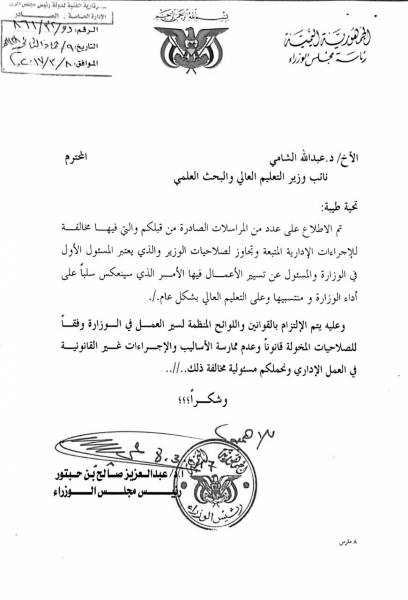 بسم الله الرحمن الرحيم
الجمهورية اليمنية
رئاسة مجلس الوزراء
الرقم:
التاريخ:
الموافق:
الأخ/ د.عبدالله الشامي المحترم
نائب وزير التعليم العالي والبحث العلمي
تحية طيبة:
تم الاطلاع على عدد من المراسلات الصادرة من قبلكم والتي فيها مخالفة
للإجراءات الإدارية المتبعة وتجاوز لصلاحيات الوزير والذي يعتبر المسئول الأول
في الوزارة والمسئول عن تسيير الأعمال فيها الأمر الذي سينعكس سلباً على
أداء الوزارة و منتسبيها وعلى التعليم العالي بشكل عام./.
وعليه يتم الإلتزام بالقوانين واللوائح المنظمة لسير العمل في الوزارة وفقاً
للصلاحيات المخولة قانوناً وعدم ممارسة الأساليب والإجراءات غير القانونية
في العمل الإداري ونحملكم مسئولية مخالفة ذلك..//..
وشكراً؛؛؛
أ.د/ عبدالعزيز صالح بن حبتور
رئيس مجلس الوزراء
رئيس الوزراء
٨ مارس